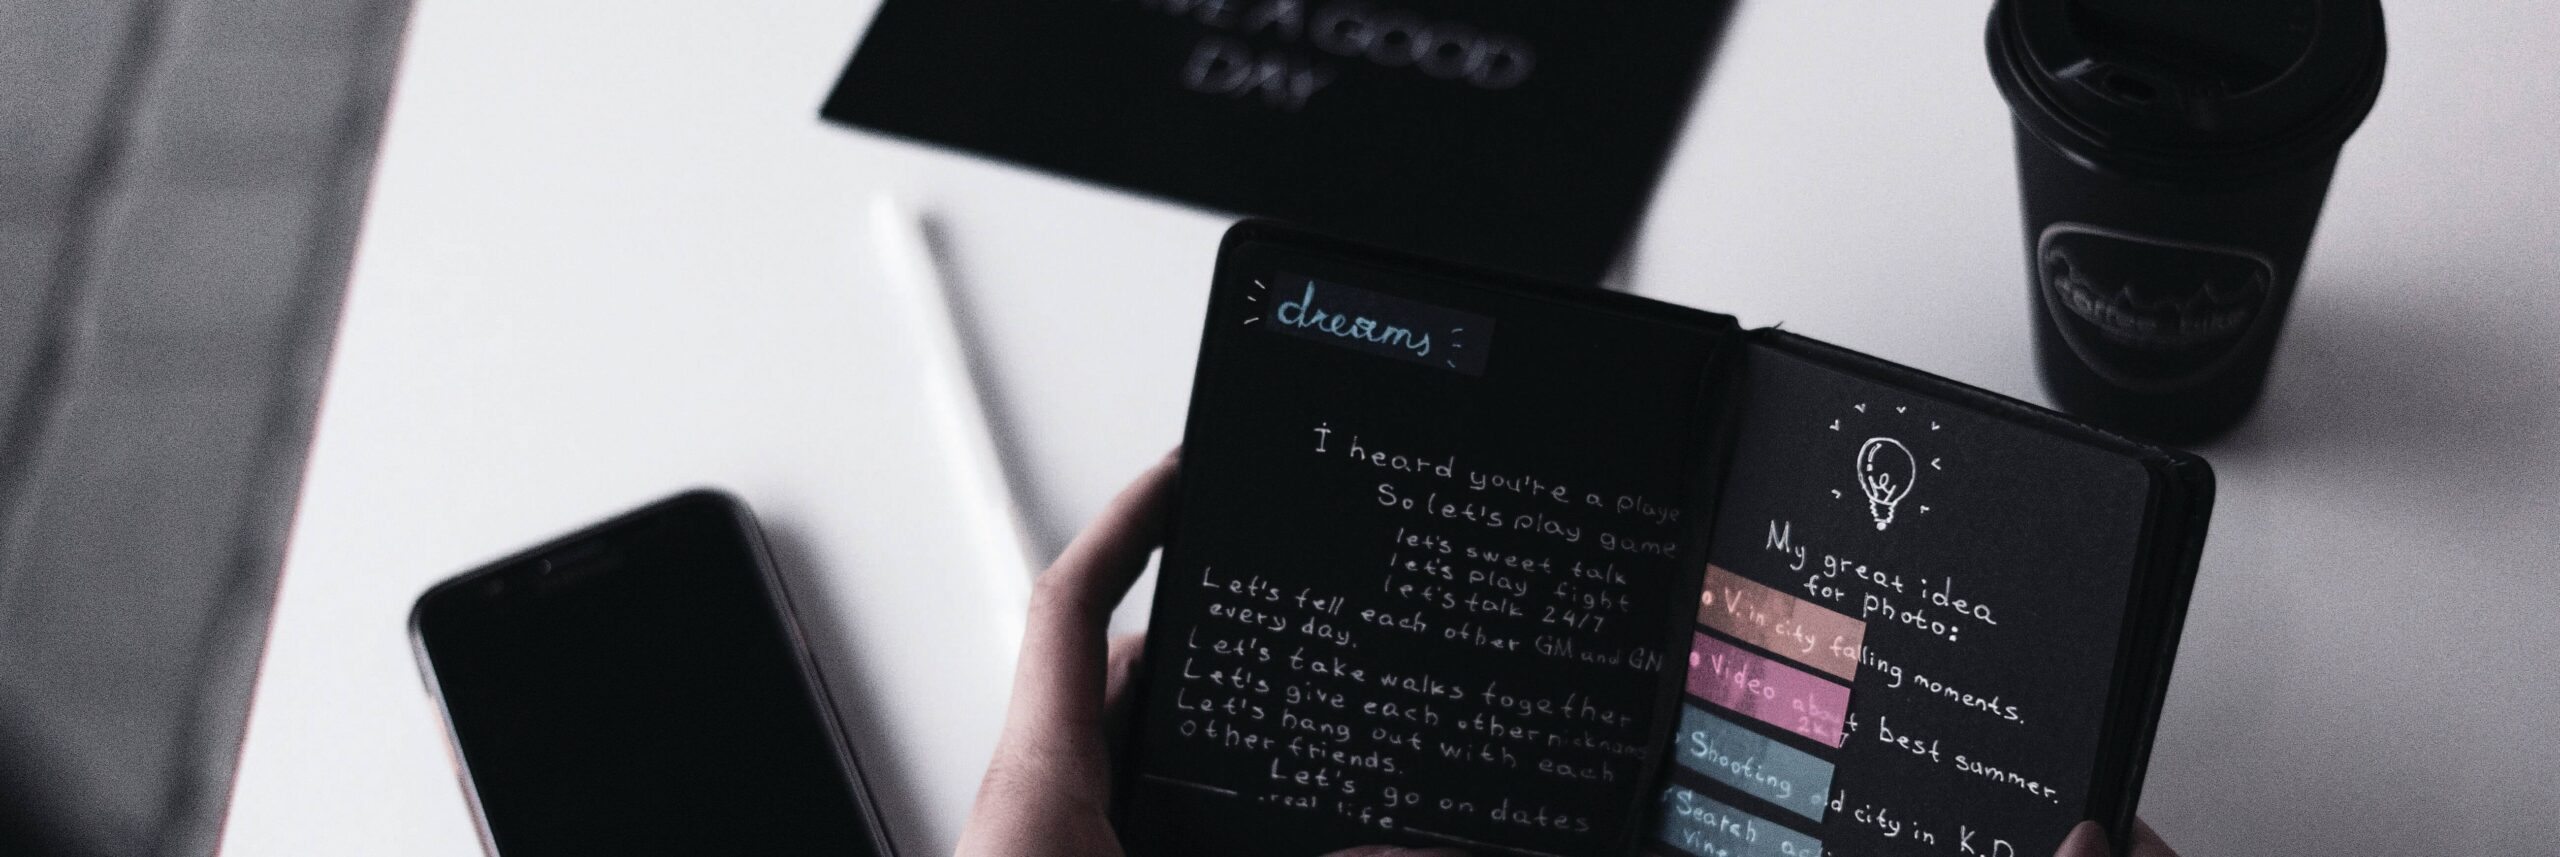 A GOOD
DAY
dreams
I heard you're a playe
So let's play game
let's sweet talk
let's play fight
let's talk 24/7
Let's tell each other GM and GN
every day.
Let's take walks together
Let's give each other nickname
Let's hang out with each
other friends.
Let's go on dates
real life
My great idea
for photo:
V. in city falling moments.
Video about best summer.
2k17
Shooting old city in K.D
Search
vine